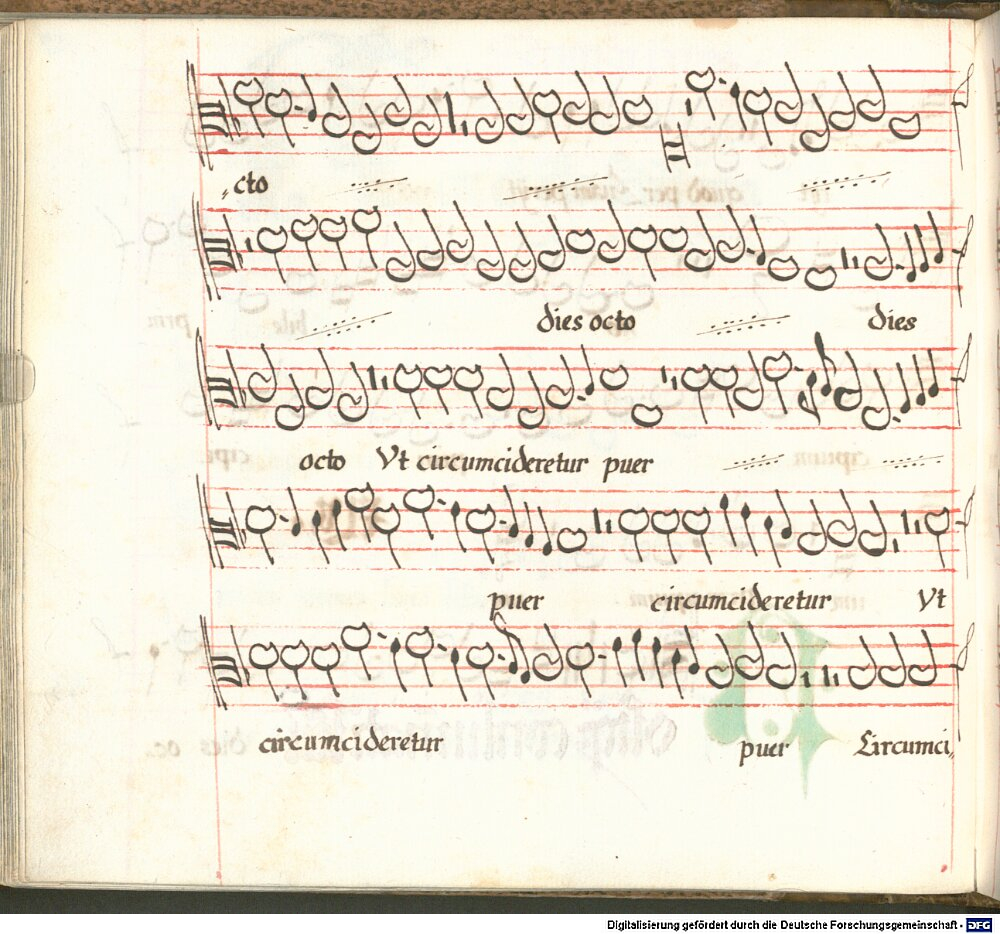 cto
dies octo dies
octo Vt circumcideretur puer
puer circumcideretur Vt
circumcideretur puer Circumci
Digitalisierung gefördert durch die Deutsche Forschungsgemeinschaft - DFG